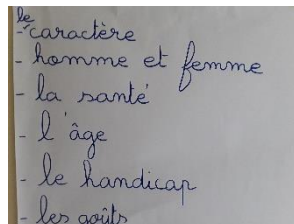 - le caractère
- homme et femme
- la santé
- l'âge
- le handicap
- les goûts